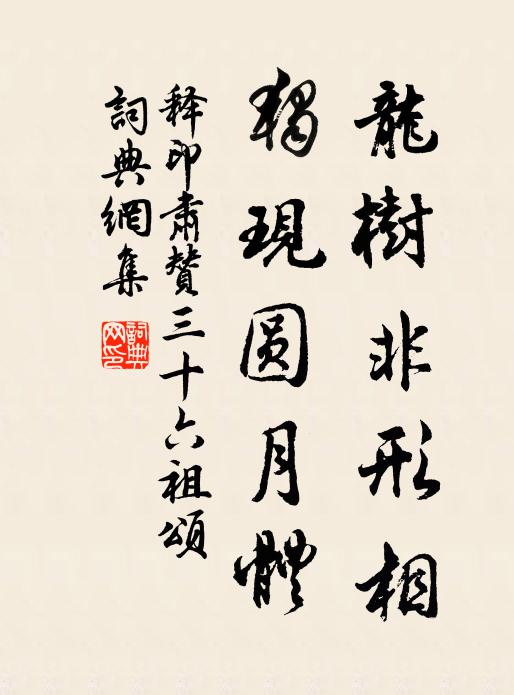 龍樹非形相
獨現圓月體
释印肅贊三十六祖頌
詞典網集
詞典網印